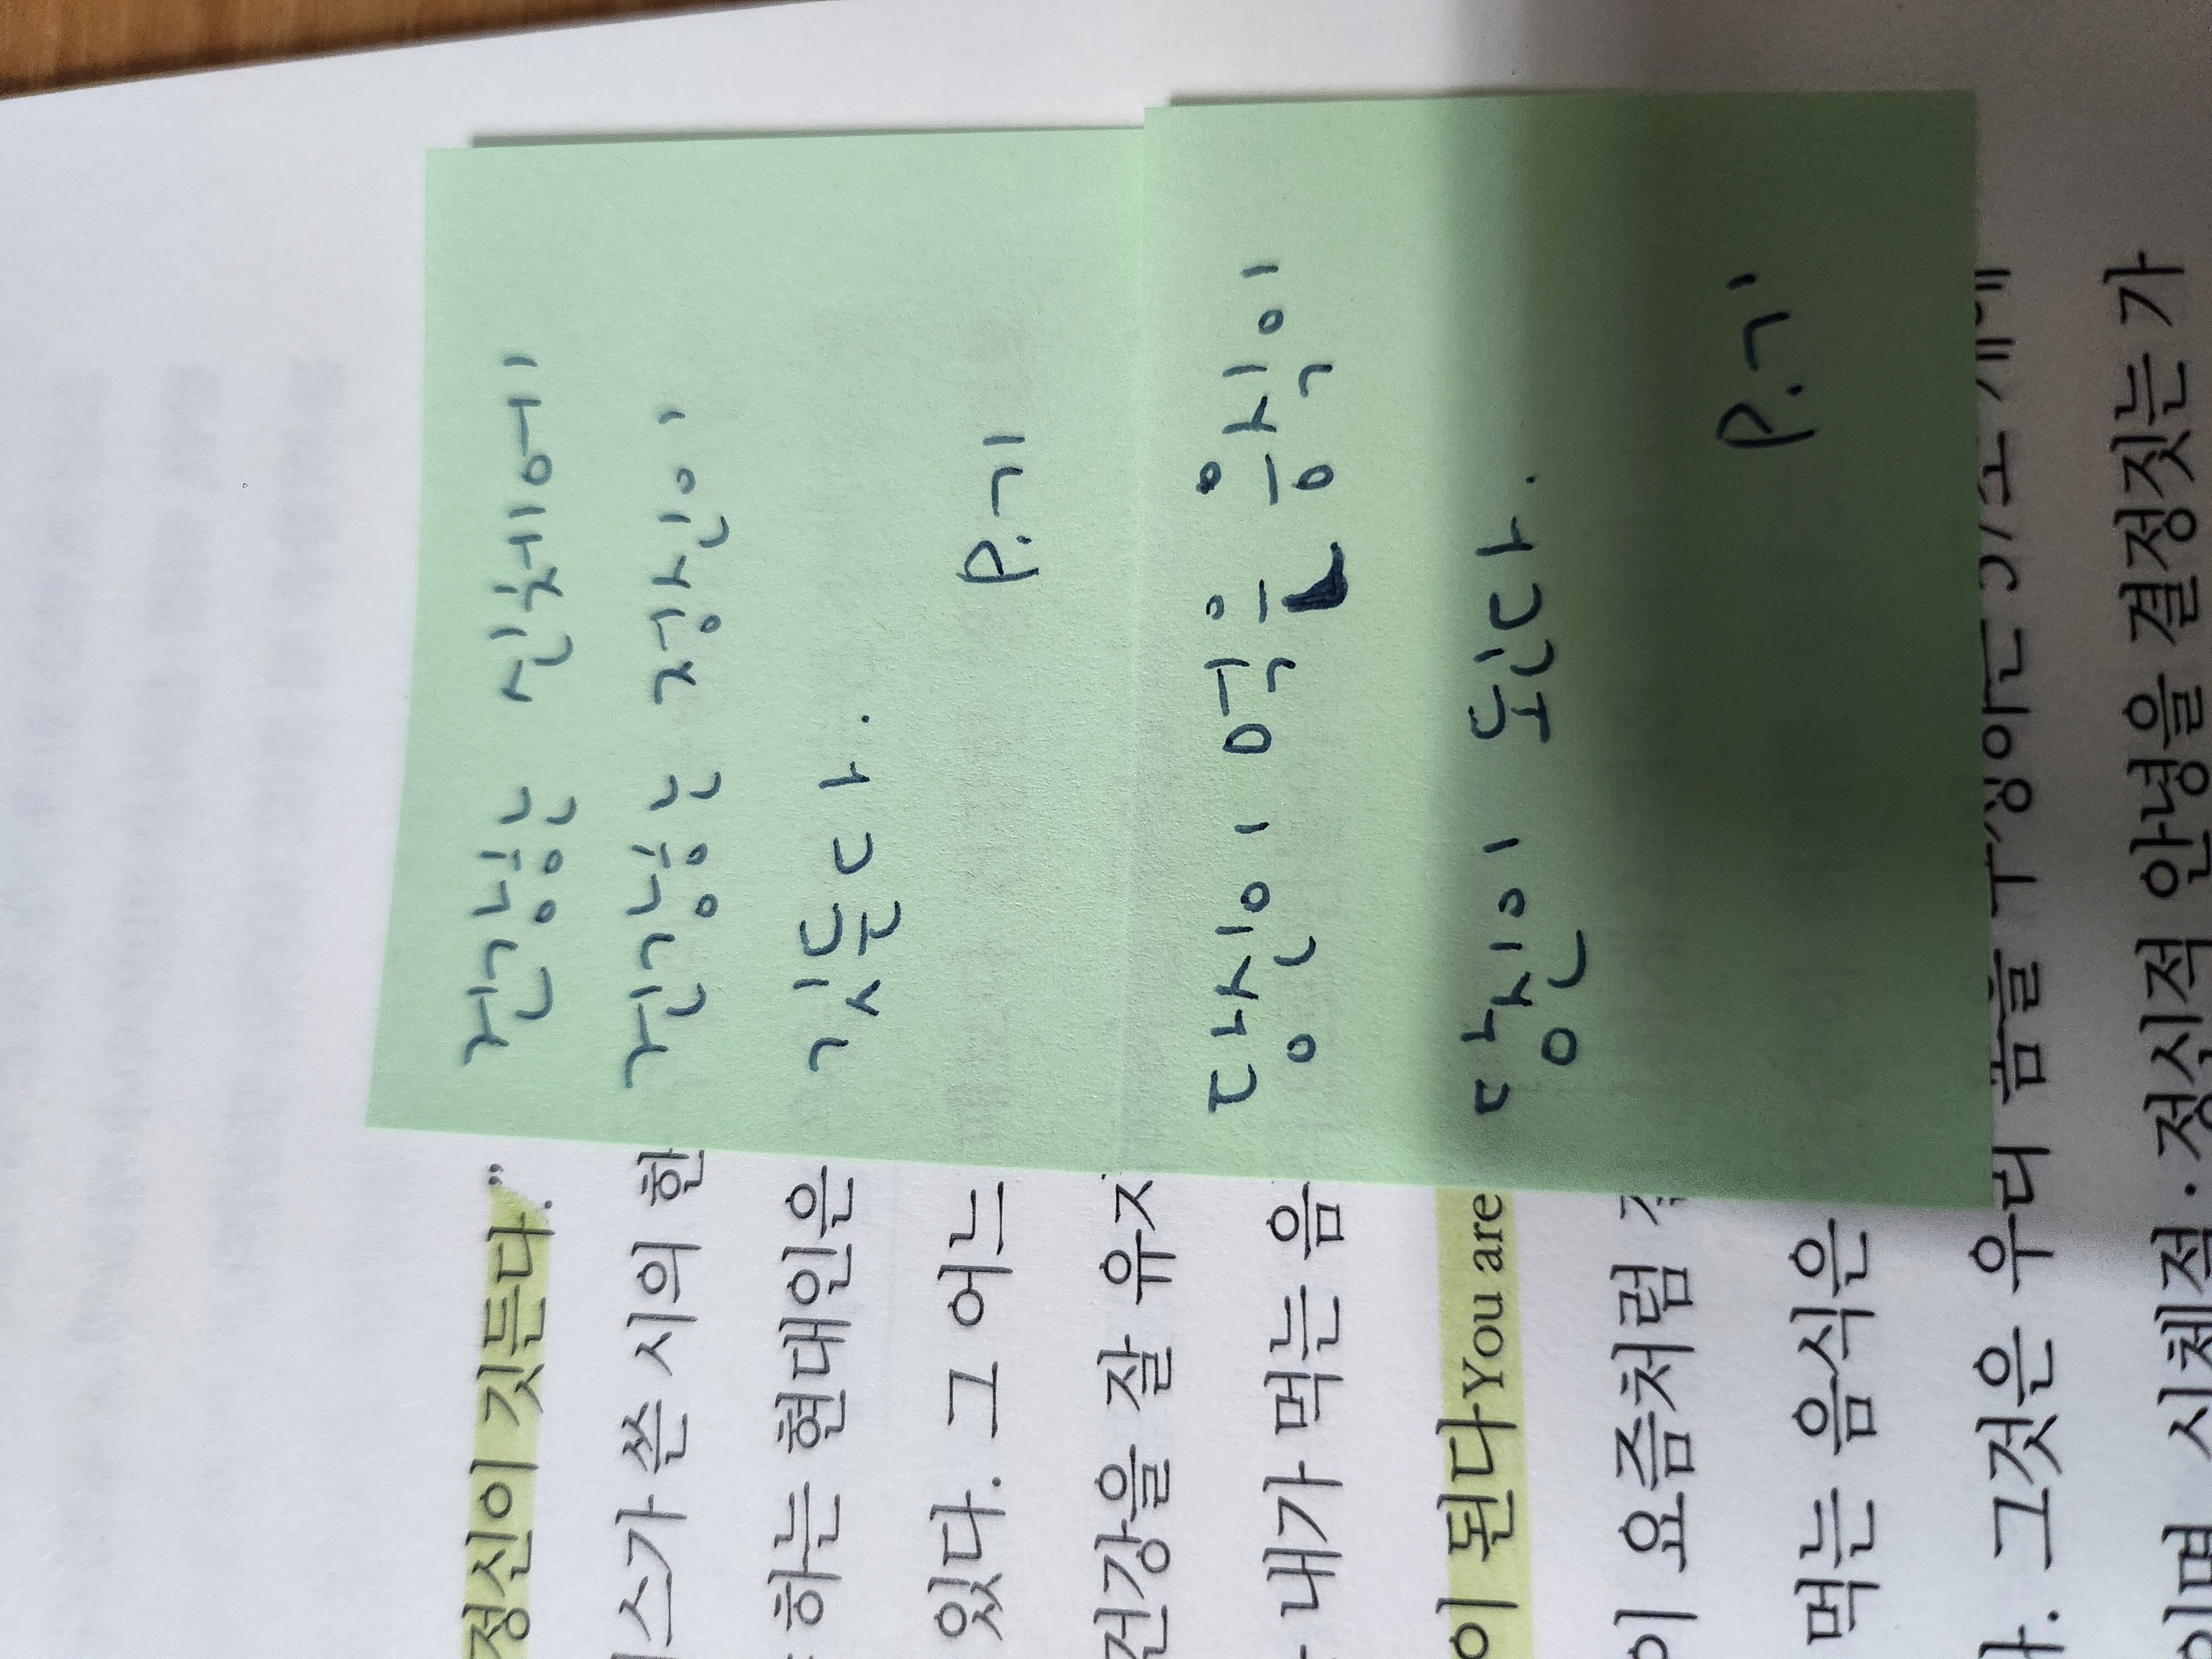 건강한 신체에
건강한 정신이
깃든다.
P.71
당신이 먹은 음식이
당신이 된다.
P.71
정신이 깃든다."
스가 쓴 시의 한
하는 현대인은
있다. 그 어느
건강을 잘 유
내가 먹는 음
이 된다You are
이 요즘처럼
먹는 음식은
다. 그것은 우리 몸을
이며 신체적·정신적 안녕을 결정짓는 가